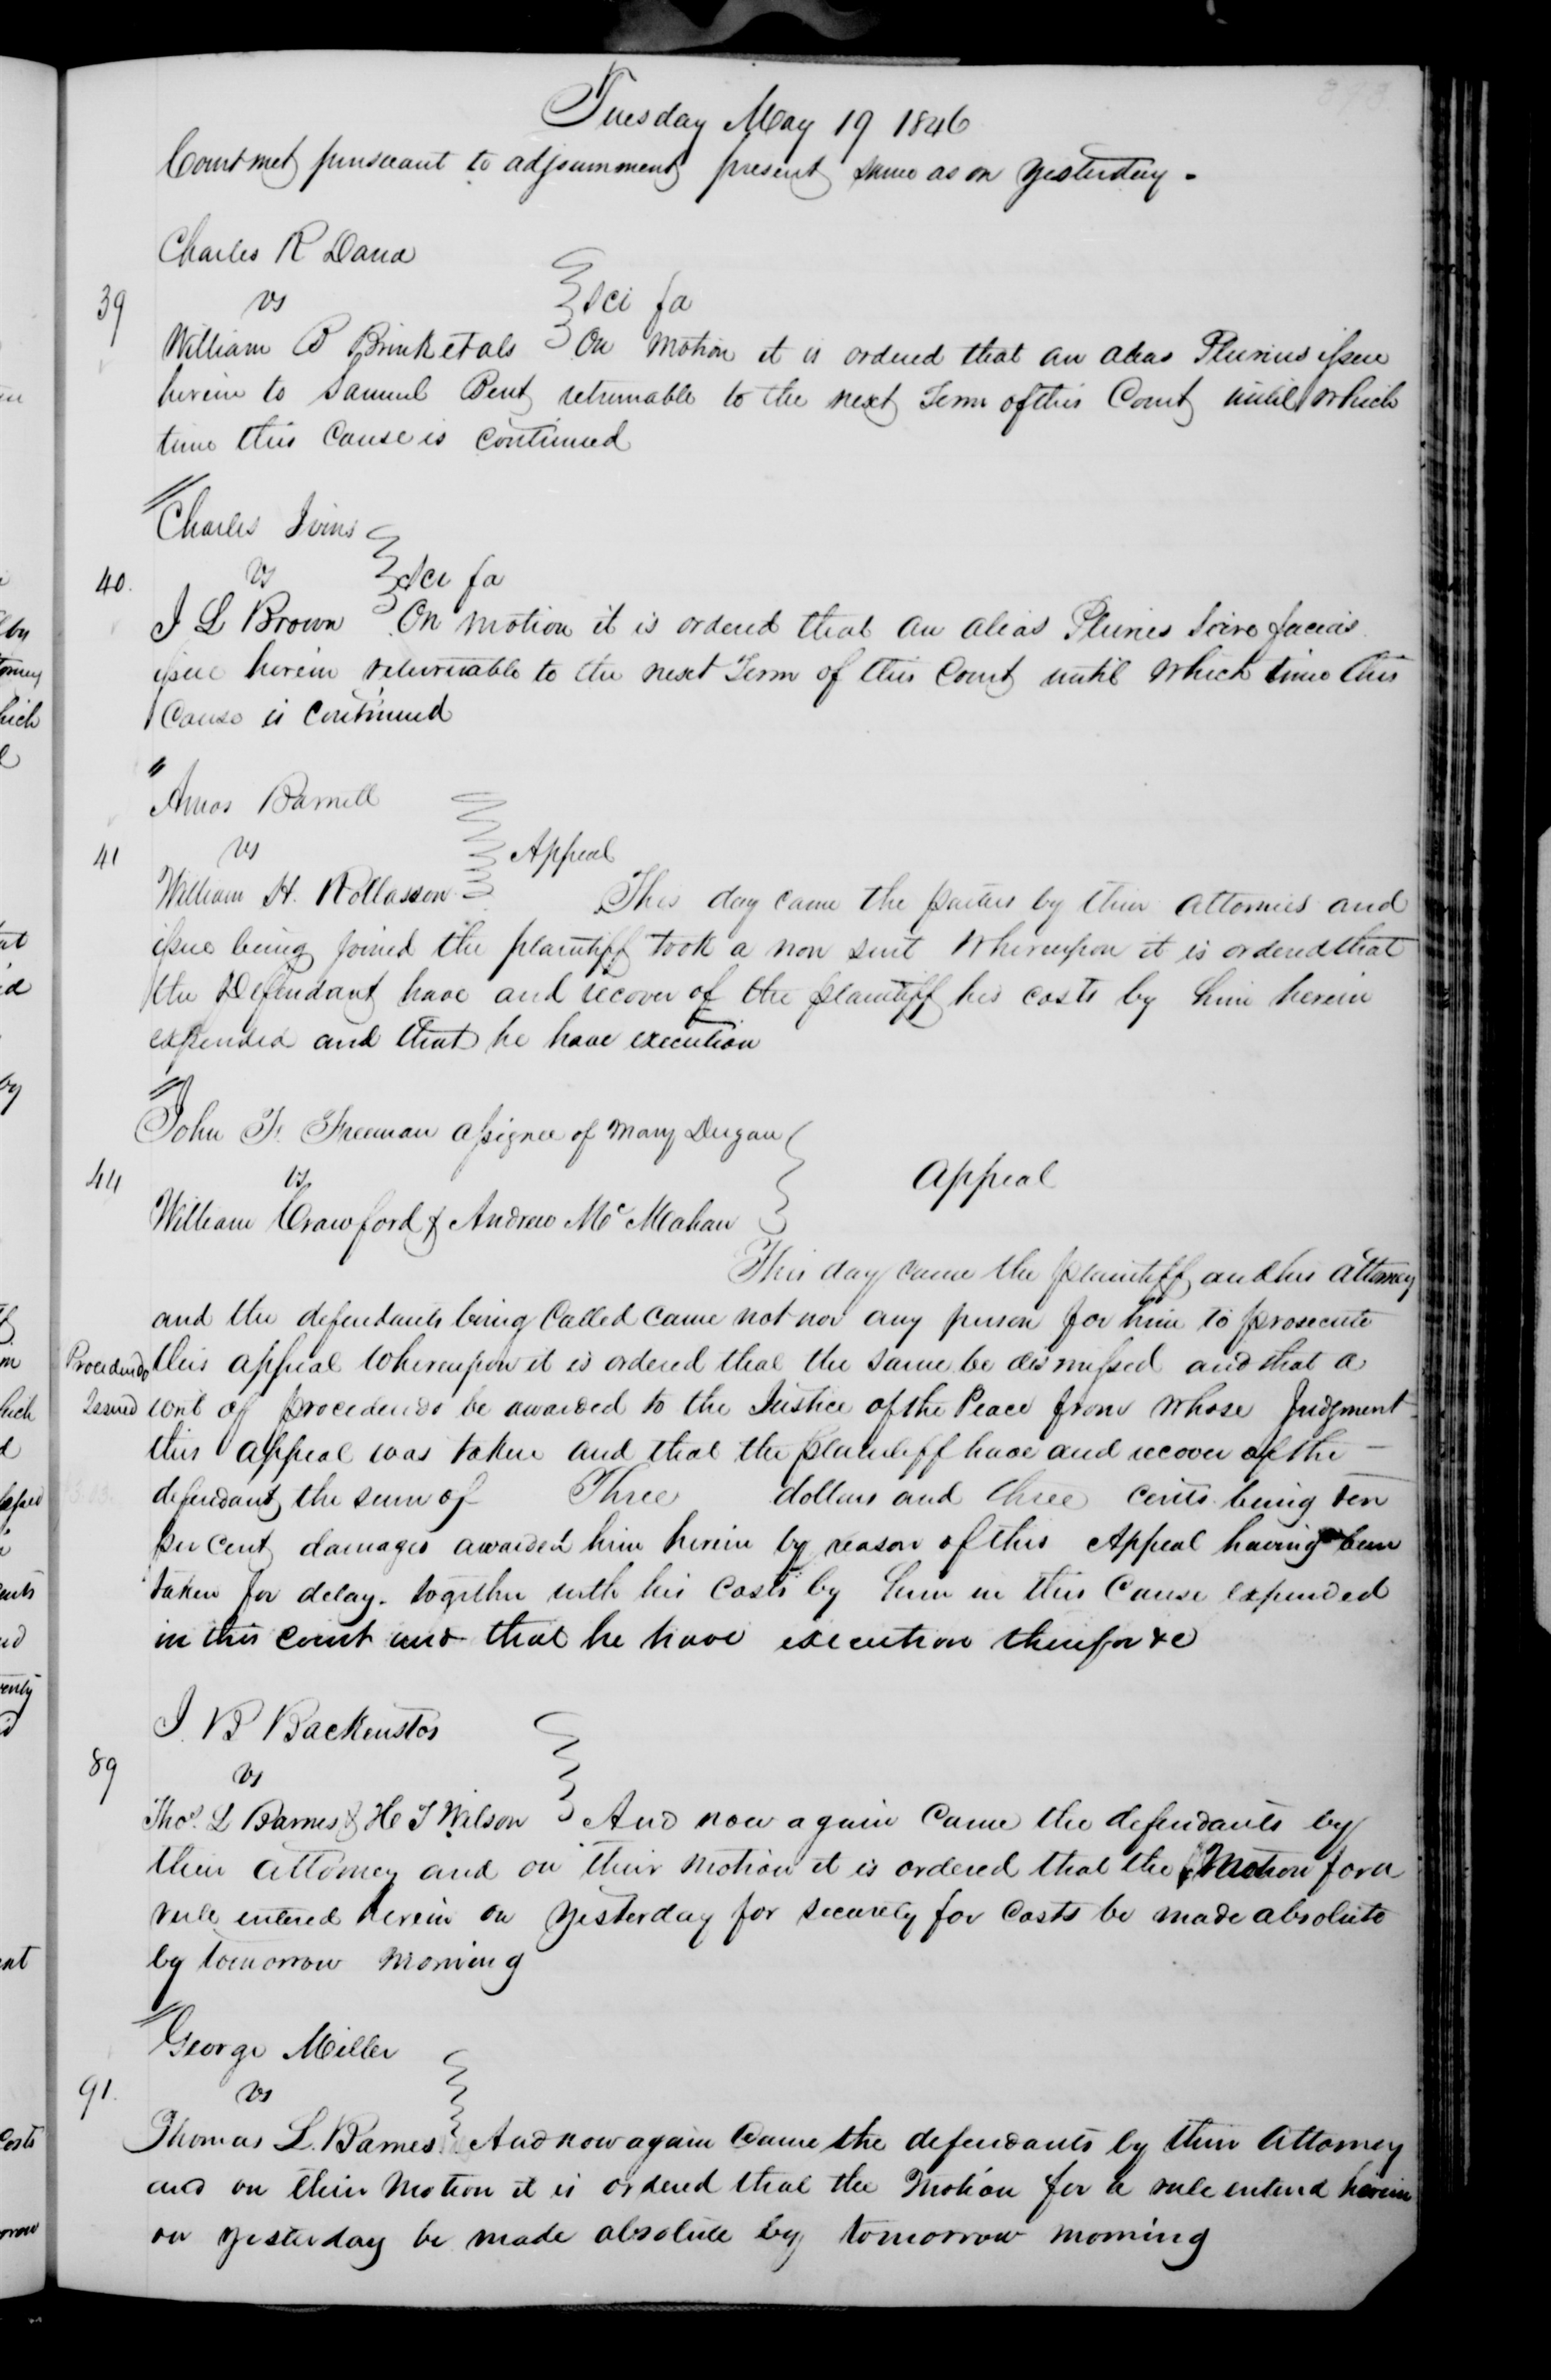 Tuesday May 19 1846
Court met pursuant to adjournment present same as on yesterday.
Charles R Dana
39 vs Sci fa
William B Brink et als On motion it is ordered that an alias Plurius issue
herein to Samuel Bent returnable to the next Term of this Court until which
time this Cause is Continued
Charles Ivins
40. vs Sci fa
J L Brown On motion it is ordered that an alias Pluries Scire facias
issue herein returnable to the next Term of this Court until which time this
Cause is Continued
Amos
41 vs Appeal
William H. Rollasson This day came the parties by their attornies and
issue being joined the plaintiff took a non suit Whereupon it is ordered that
the Defendant have and recover of the plaintiff his costs by him herein
expended and that he have execution
John F. Freeman assignee of Mary Dugan
44 vs Appeal
William Crawford & Andrew Mc Mahan
This day came the plaintiff and his attorney
and the defendants being Called came not nor any person for him to prosecute
Procedendo this appeal Whereupon it is ordered that the same be dismissed and that a
Issued writ of procedendo be awarded to the Justice of the Peace from whose Judgment
this appeal was taken and that the plaintiff have and recover of the
defendant the sum of Three dollars and three cents being ten
per cent damages awarded him herein by reason of this Appeal having been
taken for delay. together with his costs by him in this Cause expended
in this court and that he have execution therefor &c
J. B Backenstos
89 vs
Thos. L Barnes & H T Wilson And now again Came the defendants by
their attorney and on their motion it is ordered that the Motion for a
rule entered herein on yesterday for security for Costs be made absolute
by tomorrow morning
George Miller
91. vs
Thomas L. Barnes And now again Came the defendants by their Attorney
and on their Motion it is ordered that the Motion for a rule enterd herein
on yesterday be made absolute by tomorrow morning